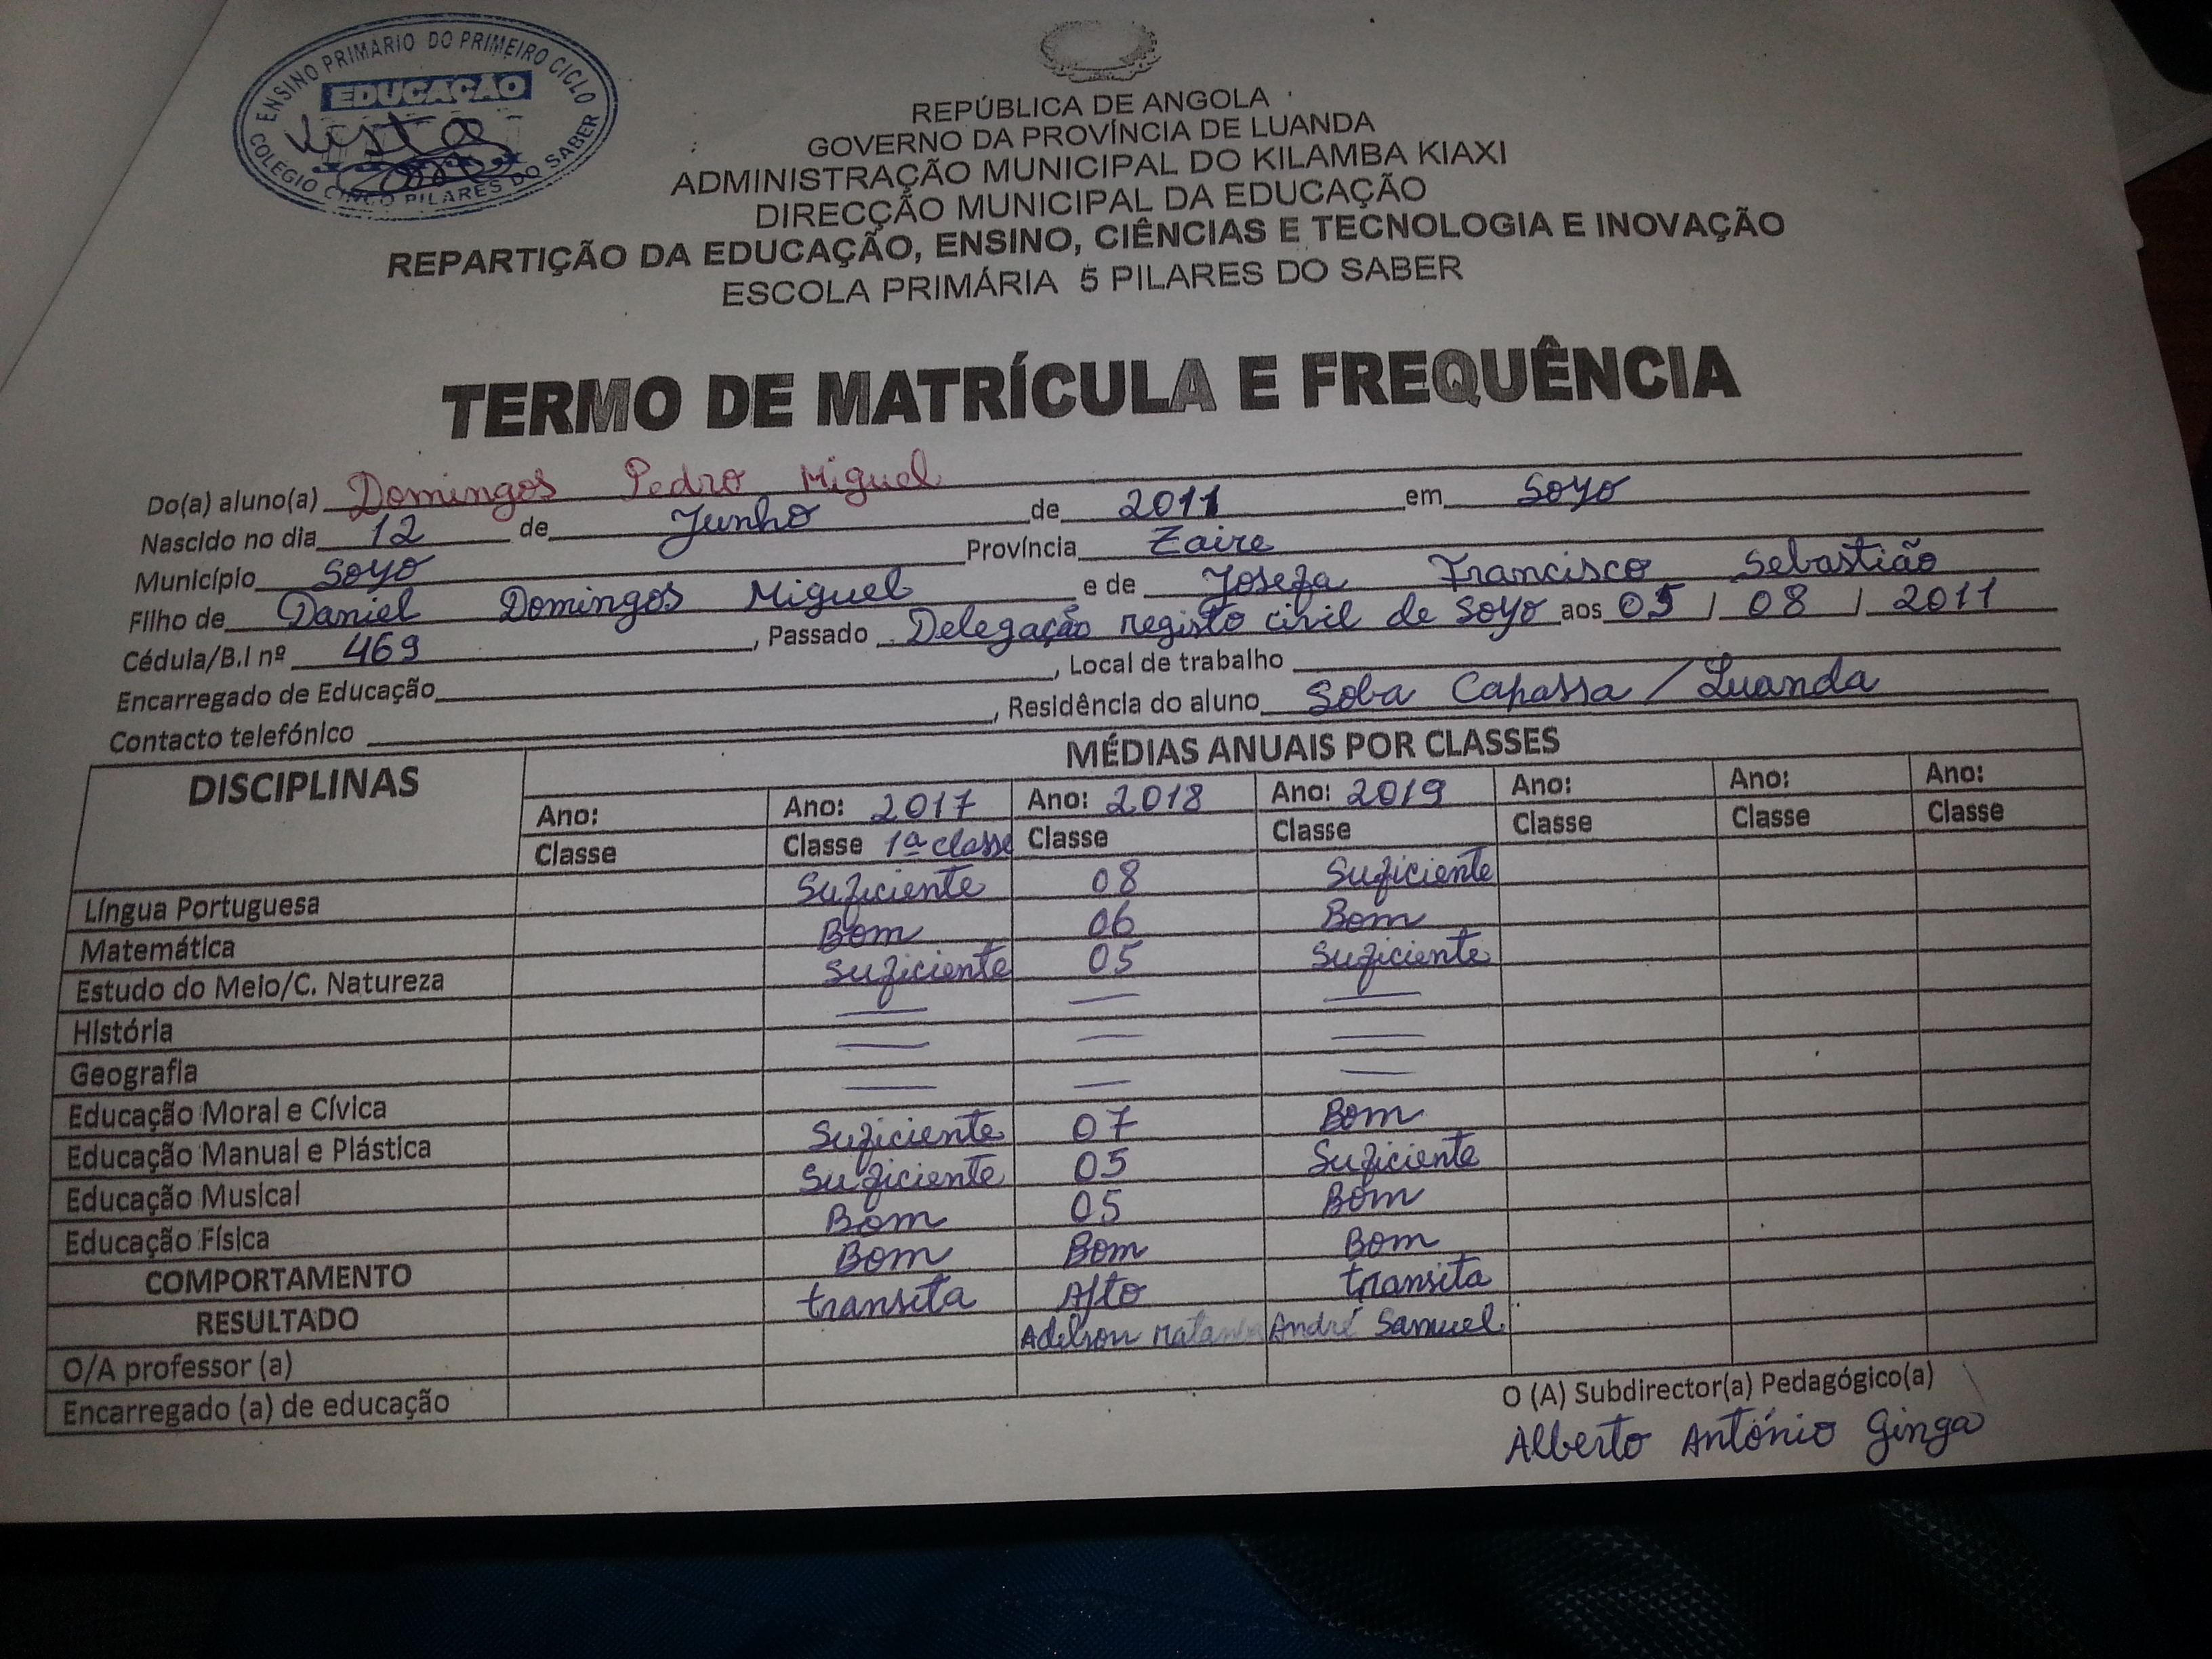 ENSINO PRIMARIO DO PRIMEIRO CICLO
EDUCAÇÃO
COLEGIO CINCO PILARES DO SABER
REPÚBLICA DE ANGOLA
GOVERNO DA PROVÍNCIA DE LUANDA
ADMINISTRAÇÃO MUNICIPAL DO KILAMBA KIAXI
DIRECÇÃO MUNICIPAL DA EDUCAÇÃO
REPARTIÇÃO DA EDUCAÇÃO, ENSINO, CIÊNCIAS E TECNOLOGIA E INOVAÇÃO
ESCOLA PRIMÁRIA 5 PILARES DO SABER
TERMO DE MATRÍCULA E FREQUÊNCIA
Do(a) aluno(a) Domingos Pedro Miguel
Nascido no dia 12 de Junho de 2011 em Soyo
Município Soyo Província Zaire
Filho de Daniel Domingos Miguel e de Josefa Francisco Sebastião
Cédula/B.I nº 469, Passado Delegação registo civil de Soyo aos 05 / 08 / 2011
Encarregado de Educação, Local de trabalho
Contacto telefónico, Residência do aluno Soba Capassa / Luanda
DISCIPLINAS MÉDIAS ANUAIS POR CLASSES
Ano: Ano: 2017 Ano: 2018 Ano: 2019 Ano: Ano: Ano:
Classe Classe 1ª classe Classe Classe Classe Classe Classe
Língua Portuguesa Suficiente 08 Suficiente
Matemática Bom 06 Bom
Estudo do Meio/C. Natureza Suficiente 05 Suficiente
História
Geografia
Educação Moral e Cívica
Educação Manual e Plástica Suficiente 07 Bom
Educação Musical Suficiente 05 Suficiente
Educação Física Bom 05 Bom
COMPORTAMENTO Bom Bom Bom
RESULTADO transita Apto transita
O/A professor (a) Adilson André Samuel
Encarregado (a) de educação
O (A) Subdirector(a) Pedagógico(a)
Alberto António Ginga